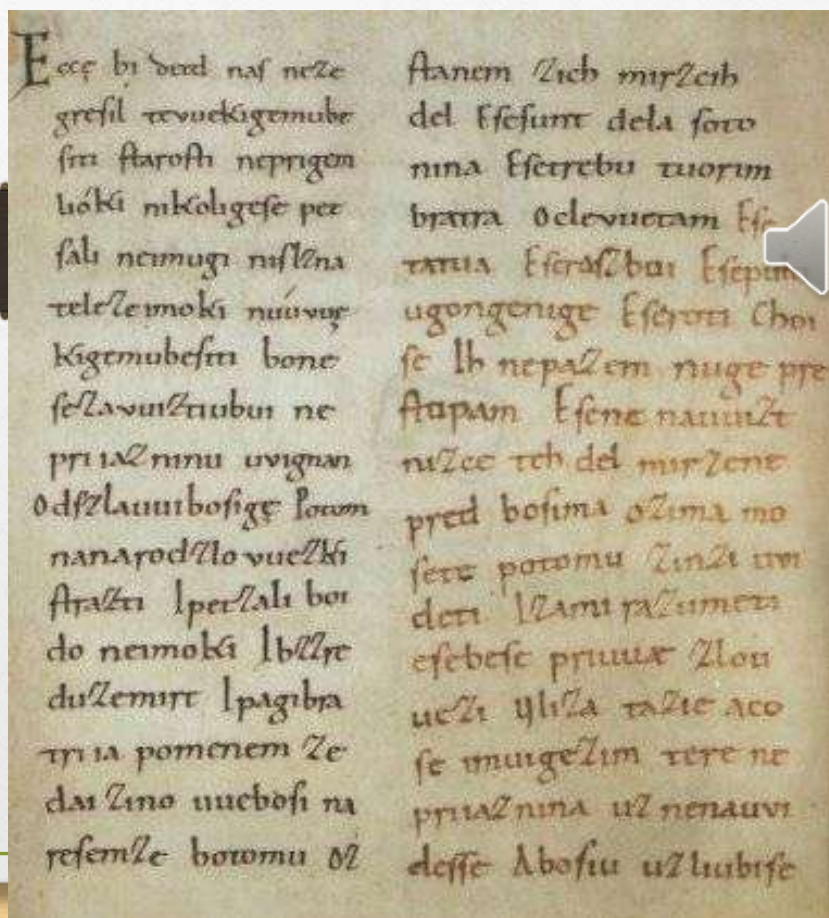 Eccę bi detd naſ neze
greſil tevuekigemube
ſiti ſtaroſti neprigem
lióki nikoligeſe pet
ſali neimugi niſlzna
teleZeimoki nuúvuę
kigemubeſiti bone
ſezavuiztiubui ne
priiazninu uvignan
Odſzlauuiboſigę Potom
nanarodzlovuezki
ſtrazti Ipetzali boi
do neimoki Ibzzre
duzemirt Ipagibra
triia pomenem ze
dai zino uueboſi na
reſemze botomu oz
ſtanem zich mirzcih
del Eſeſunt dela ſoto
nina Eſetrebu tuorim
bratra Oclevuetam Eſe
tatua Eſeraſzboi
ugongenige Eſeroti Choi
ſe Ih nepazem nuge pre
ſtopam Eſene nauuizt
nizce teh del mirzene
pred boſima ozima mo
ſete potomu zinzi uvi
deti Izami razumeti
eſebeſe priuuæ zlou
uezi Uliza tazie aco
ſe imuigezim tere ne
priiaznina uz nenauvi
deſſe Aboſiu uzliubiſe